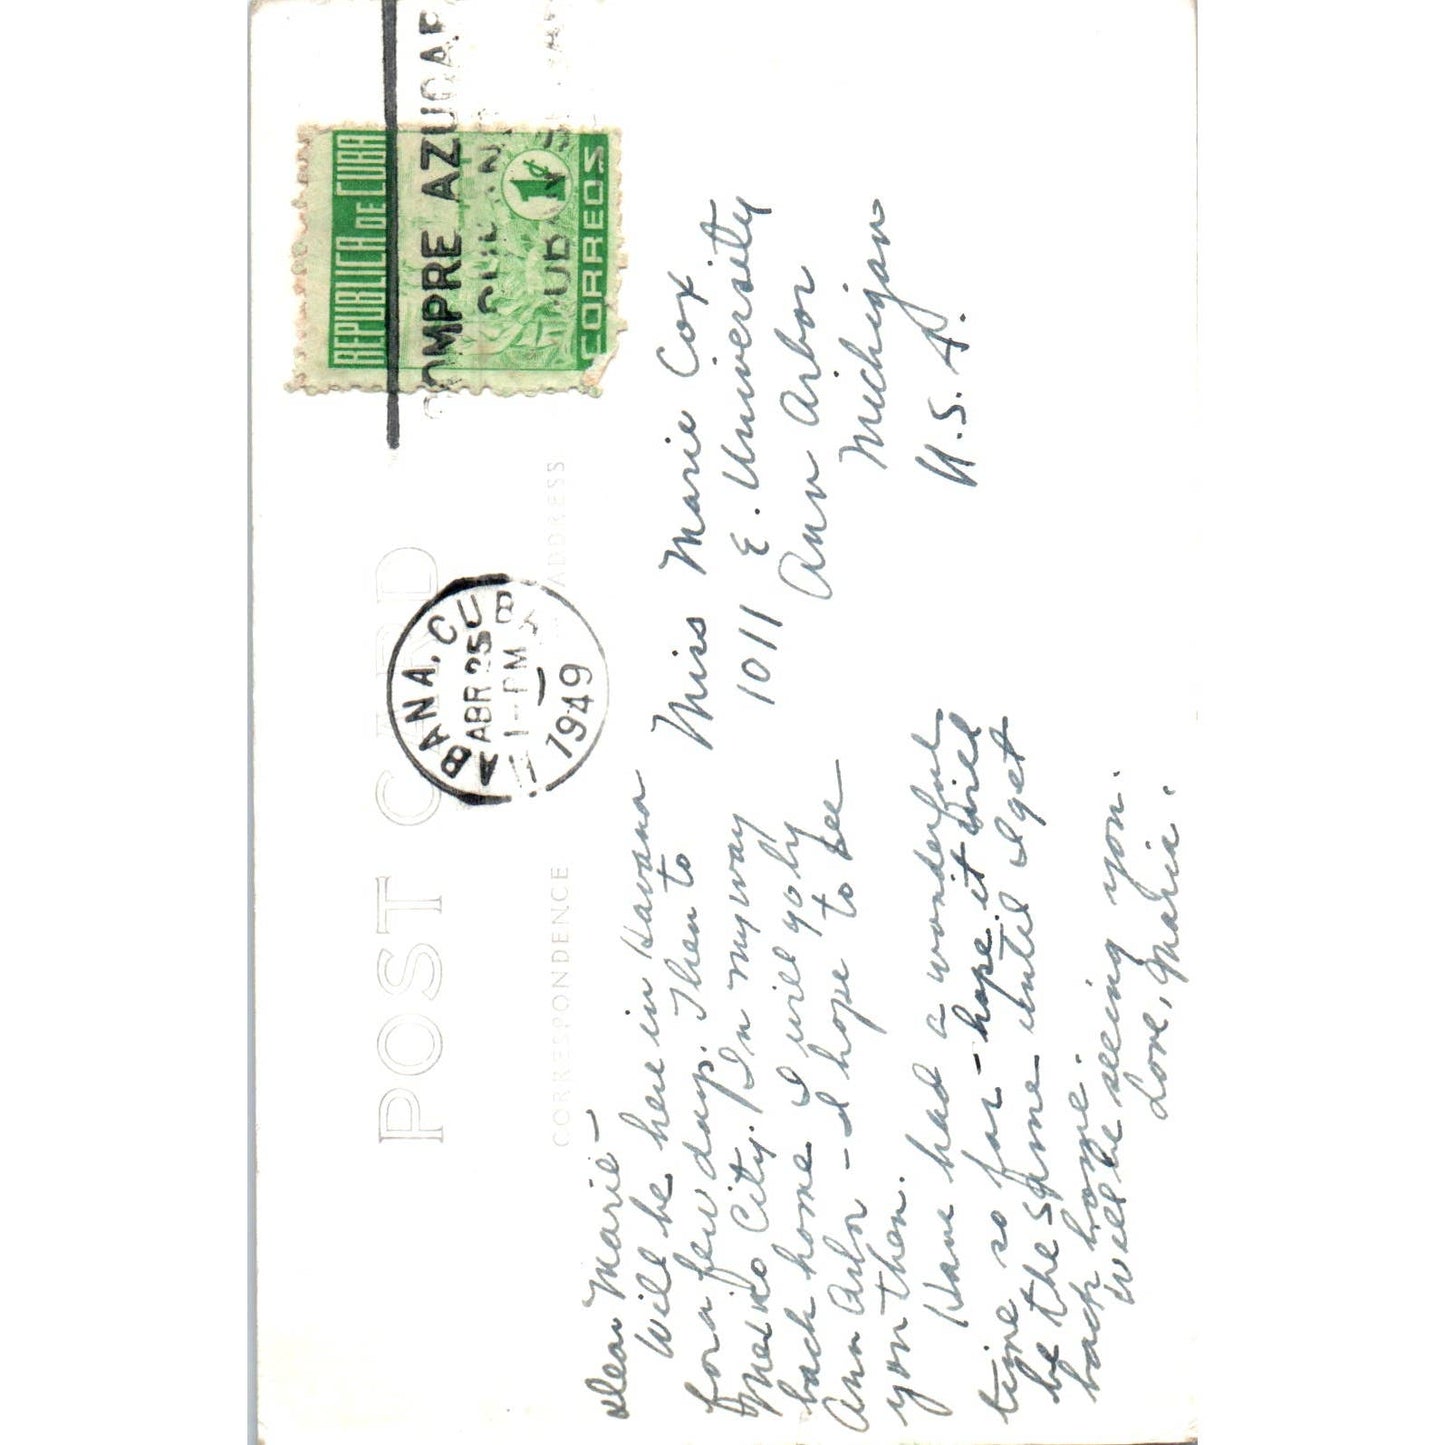 POST CARD
CORRESPONDENCE
ADDRESS
HABANA, CUBA
ABR 25
1-PM
1949
COMPRE AZUCAR
CUBANO
REPUBLICA DE CUBA
1¢
CORREOS
Dear Marie –
Will be here in Havana
for a few days. Then to
Mexico City. In my way
back home I will go by
Ann Arbor – I hope to see
you then.
Have had a wonderful
time so far – hope it will
be the same until I get
back home.
Will be seeing you.
Love, Maria.
Miss Marie Cox
1011 E. University
Ann Arbor
Michigan
U.S.A.